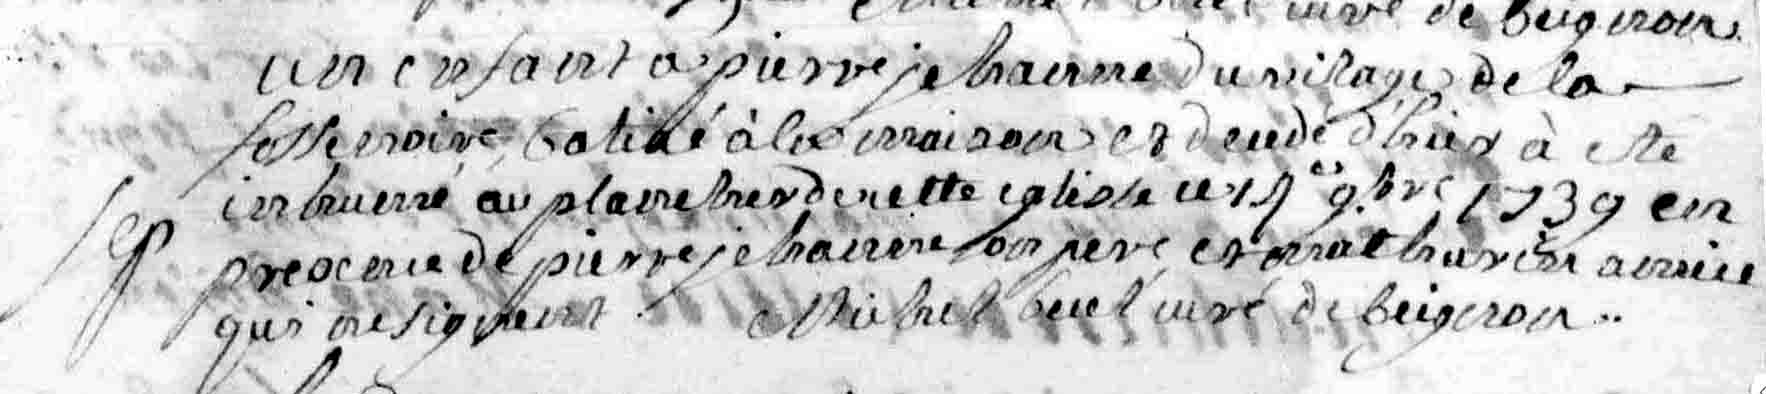 curé de beigenon
un enfant a pierre jehanne du vilage de la
fosse noire batisé à la maison et decedé d'hier à eté
inhumé au placitre de cette eglisse ce 9.bre 1739 en
presence de pierre jehanne son pere et mathurin
qui ne signent. Michel curé de beigenon..